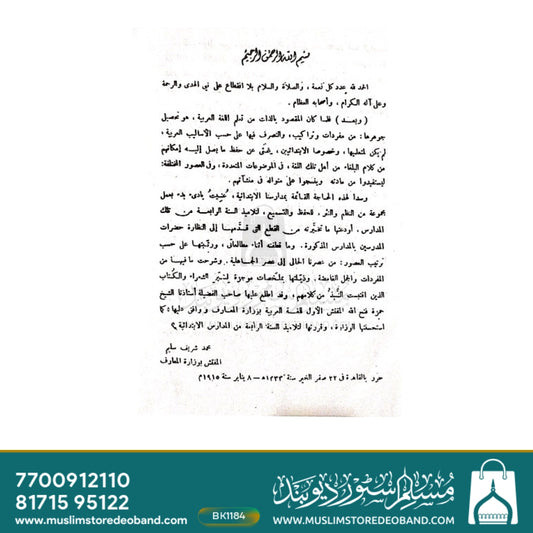 بسم الله الرحمن الرحيم
الحمد لله عدد كل نعمة، والصلاة والسلام بلا انقطاع على نبي الهدى والرحمة
وعلى آله الكرام، وأصحابه العظام.
(وبعد) فلما كان المقصود بالذات من تعلم اللغة العربية، هو تحصيل
جوهرها: من مفردات وتراكيب، والتصرف فيها على حسب الأساليب العربية،
لم يكن لمتعلميها، وخصوصا الابتدائيين، غنى عن حفظ ما يصل إليه إمكانهم
من كلام البلغاء من أهل تلك اللغة، في الموضوعات المتعددة، وفي العصور المختلفة:
ليستفيدوا من مادته وينسجوا على منواله في منشآتهم.
وسدا لهذه الحاجة القائمة بمدارسنا الابتدائية، عنيت بادئ بدء بعمل
مجموعة من النظم والنثر، للحفظ والتسميع، لتلاميذ السنة الرابعة من تلك
المدارس. أودعتها ما تخيرته من القطع التي قدمها إلى النظارة حضرات
المدرسين بالمدارس المذكورة. وما قطفته أثناء مطالعاتي، ورتبتها على حسب
ترتيب العصور: من عصرنا الحالي إلى عصر الجاهلية. وشرحت ما فيها من
المفردات والجمل الغامضة. وذيلتها بملخصات موجزة لسير الشعراء والكتاب
الذين اقتبست النبذ من كلامهم. وقد اطلع عليها صاحب الفضيلة أستاذنا الشيخ
حمزة فتح الله المفتش الأول للغة العربية بوزارة المعارف ووافق عليها: كما
استحسنتها الوزارة، وقررتها لتلاميذ السنة الرابعة من المدارس الابتدائية
محمد شريف سليم
المفتش بوزارة المعارف
حرر بالقاهرة في ٢٢ صفر الخير سنة ١٣٣٣ه – ٨ يناير سنة ١٩١٥م
7700912110
81715 95122
www.muslimstoredeoband.com
BK1184
مسلم سٹور دیوبند
WWW.MUSLIMSTOREDEOBAND.COM